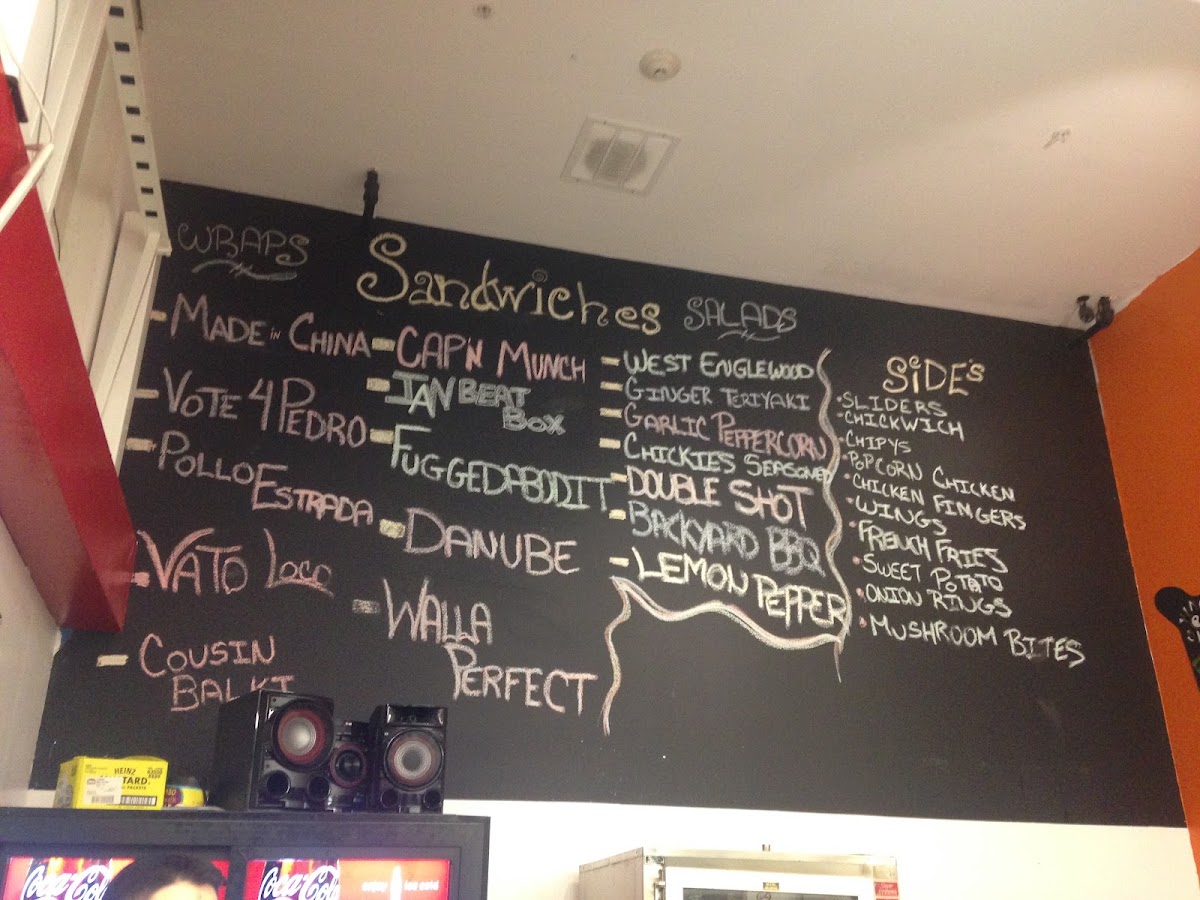 WRAPS
MADE in CHINA
VOTE 4 PEDRO
POLLO ESTRADA
VATO Loco
COUSIN
BALKI
Sandwiches
CAP'N MUNCH
IAN BEAT
BOX
FUGGEDABODIT
DANUBE
WALLA
PERFECT
SALADS
WEST ENGLEWOOD
GINGER TERIYAKI
GARLIC PEPPERCORN
CHICKIES SEASONED
DOUBLE SHOT
BACKYARD BBQ
LEMON PEPPER
SiDE's
SLIDERS
CHICKWICH
CHIPYS
POPCORN CHICKEN
CHICKEN FINGERS
WINGS
FRENCH FRIES
SWEET POTATO
ONION RINGS
MUSHROOM BITES
HEINZ
TARD.
Coca-Col
Coca-Col
enjoy ice cold